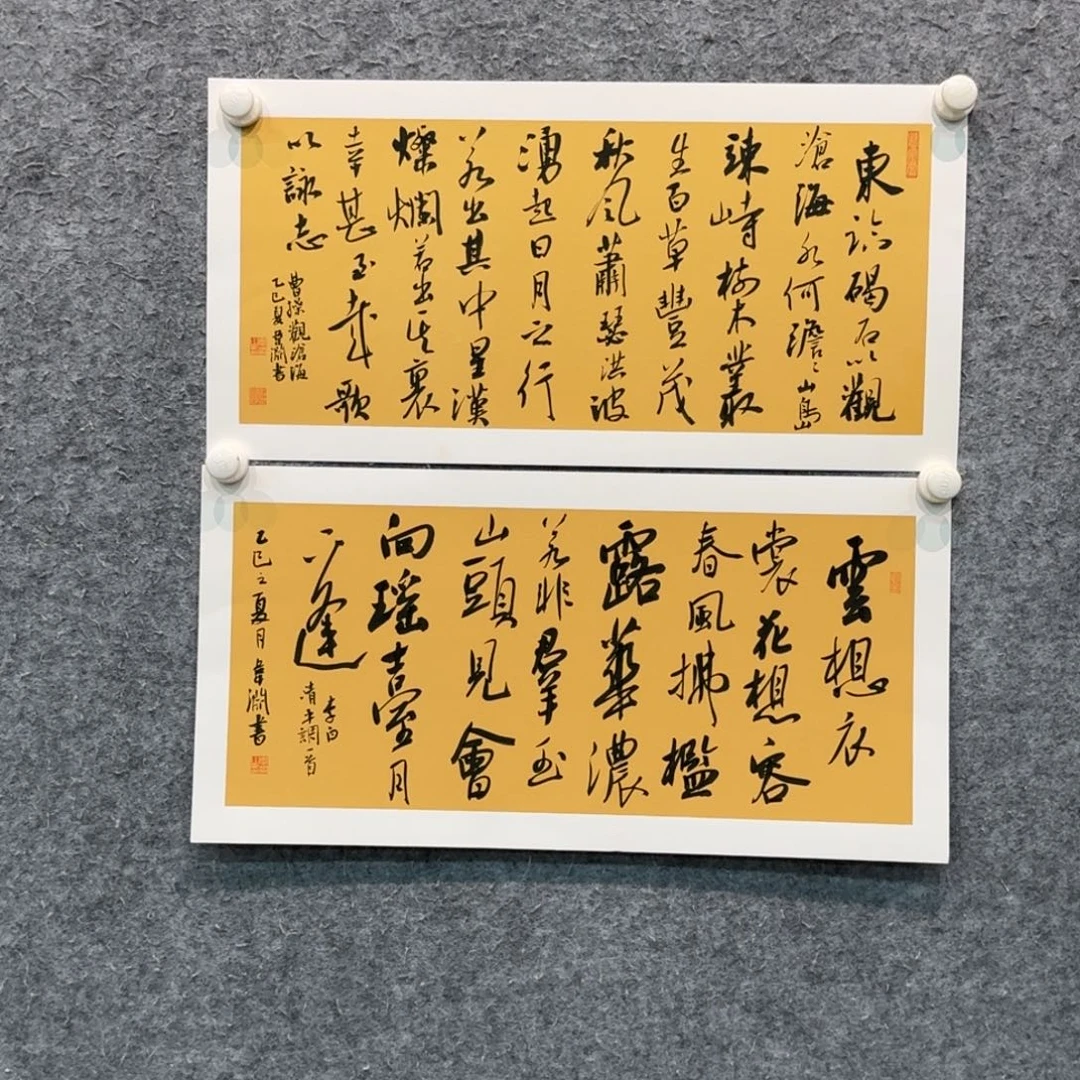 東臨碣石以觀
滄海水何澹〻山島
竦峙樹木叢
生百草豐茂
秋風蕭瑟洪波
湧起日月之行
若出其中星漢
燦爛若出其裏
幸甚至哉歌
以詠志
曹操觀滄海
乙巳夏淵書
雲想衣
裳花想容
春風拂檻
露華濃
若非羣玉
山頭見會
向瑤臺月
下逢
李白
清平調一首
乙巳之夏月淵書